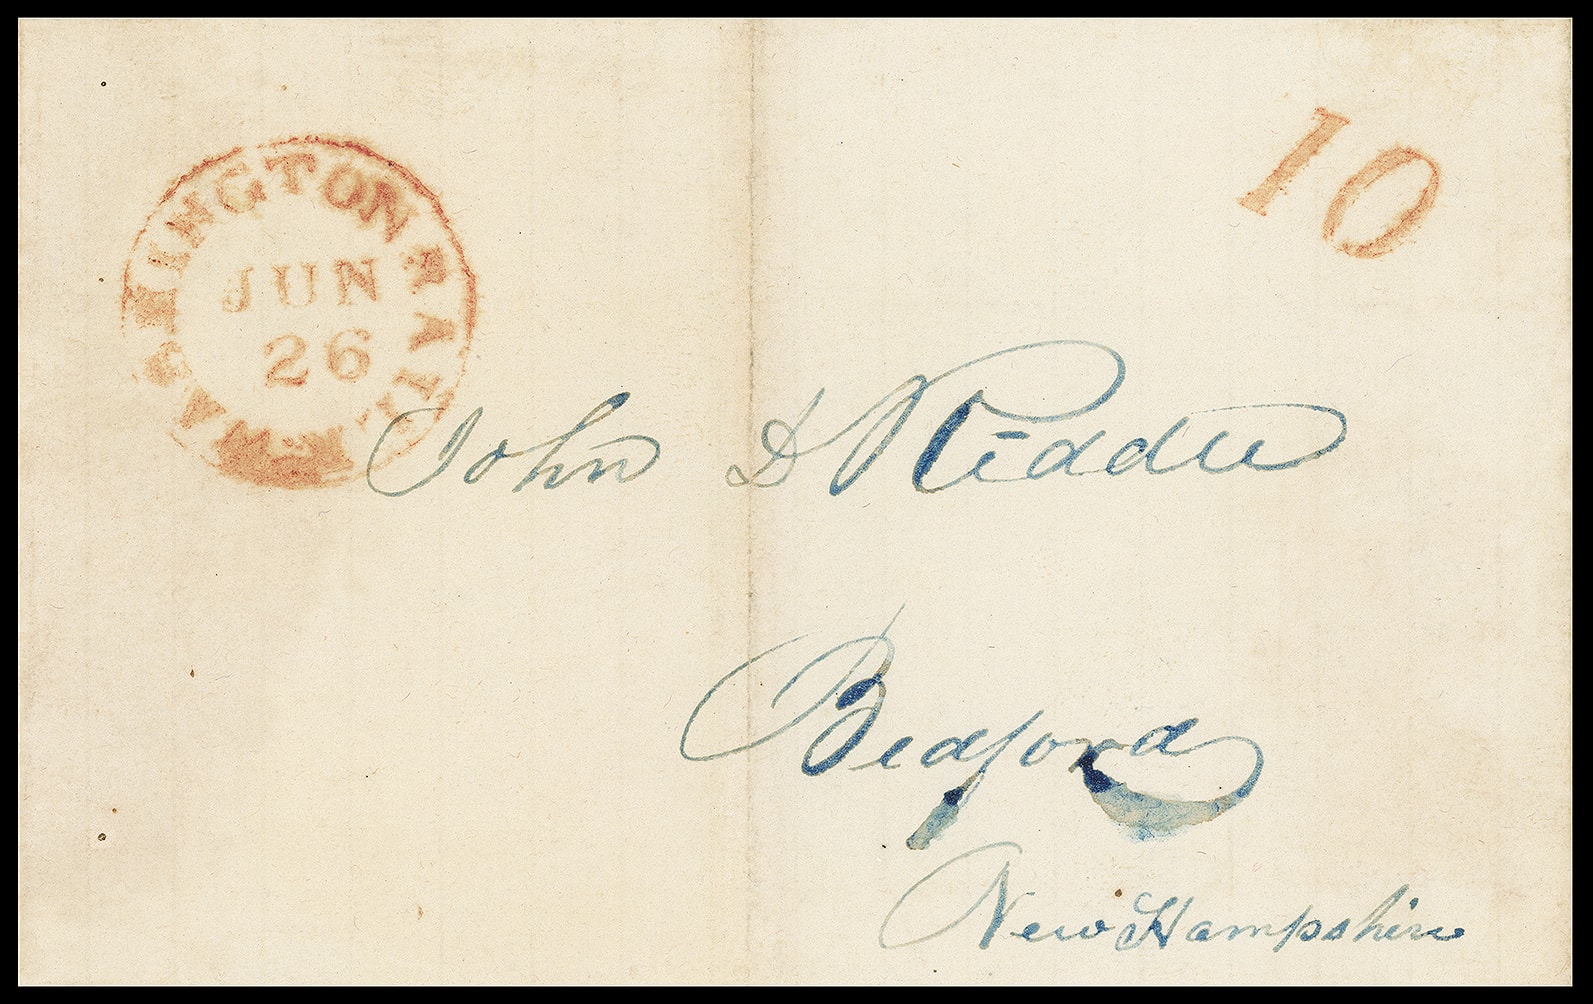 WASHINGTON
JUN
26
10
John D Riddle
Bedford
New Hampshire